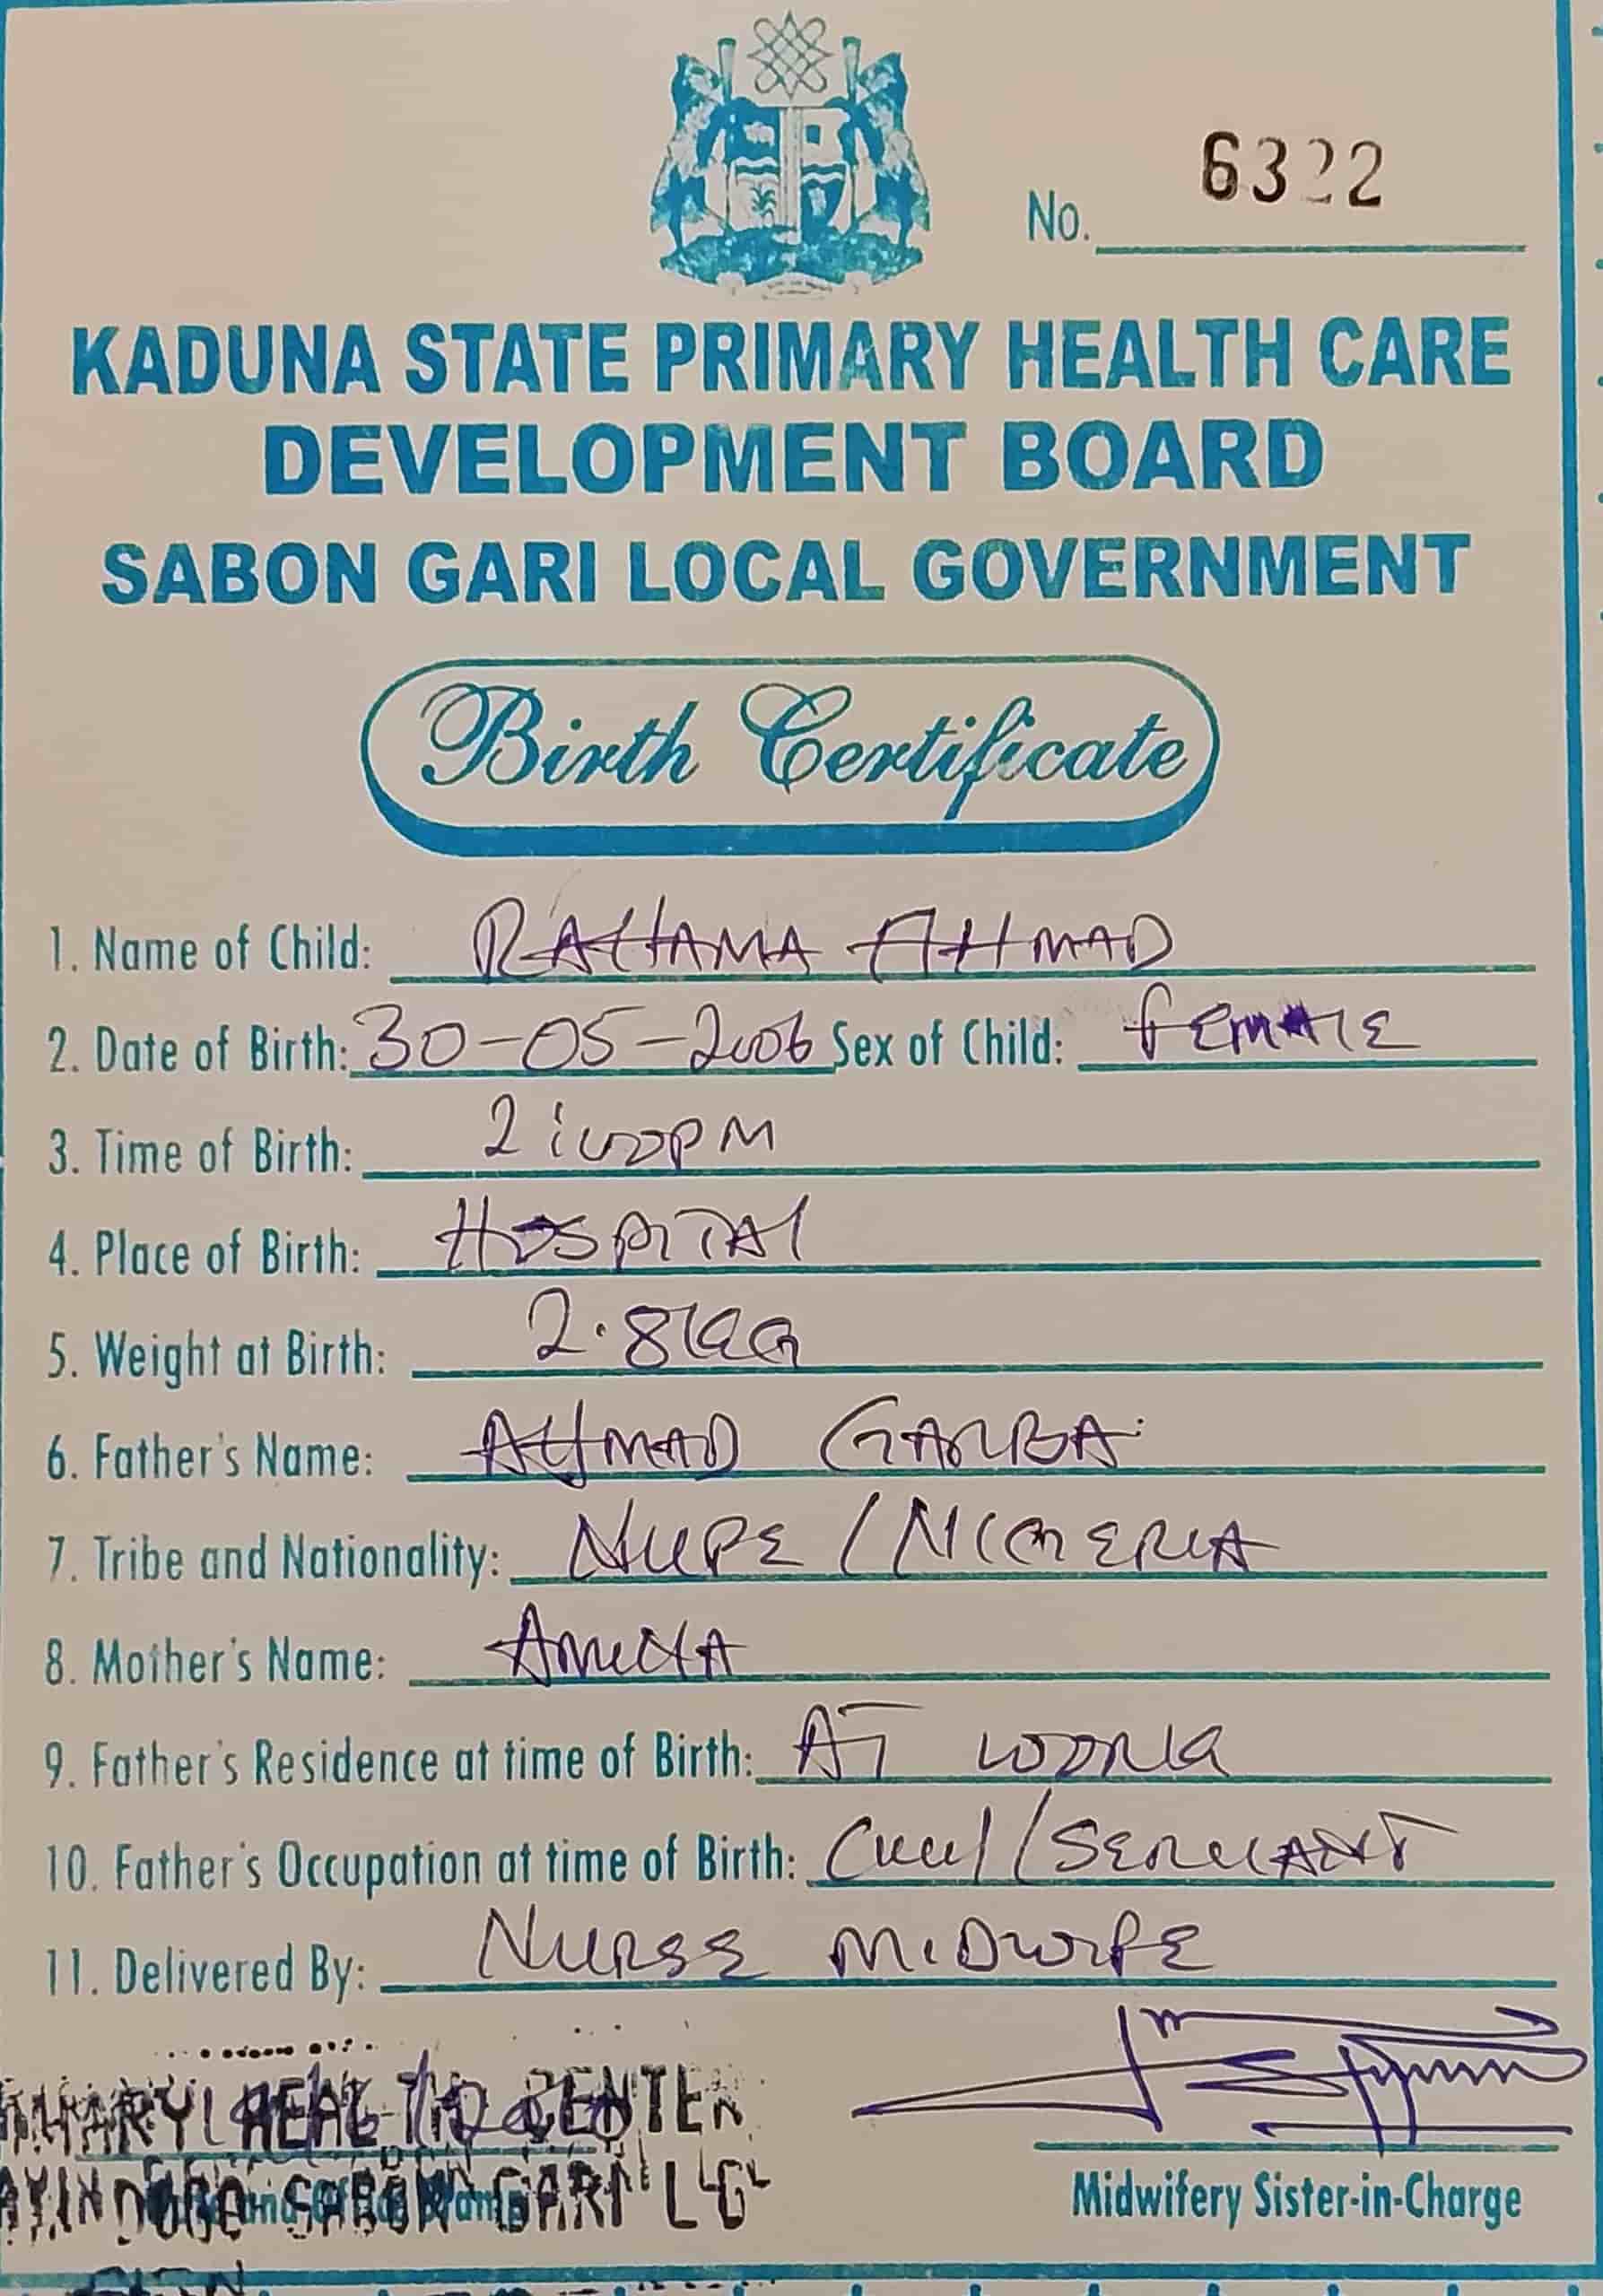 No. 6322
KADUNA STATE PRIMARY HEALTH CARE
DEVELOPMENT BOARD
SABON GARI LOCAL GOVERNMENT
Birth Certificate
1. Name of Child: RAHAMA AHMAD
2. Date of Birth: 30-05-2006 Sex of Child: female
3. Time of Birth: 2:00PM
4. Place of Birth: HOSPITAL
5. Weight at Birth: 2.8KG
6. Father's Name: AHMAD GARBA
7. Tribe and Nationality: NUPE / NIGERIA
8. Mother's Name: AMINA
9. Father's Residence at time of Birth: AT WORK
10. Father's Occupation at time of Birth: Civil / SERVANT
11. Delivered By: NURSE MIDWIFE
HEALTH CENTER
SABON GARI LG
Midwifery Sister-in-Charge